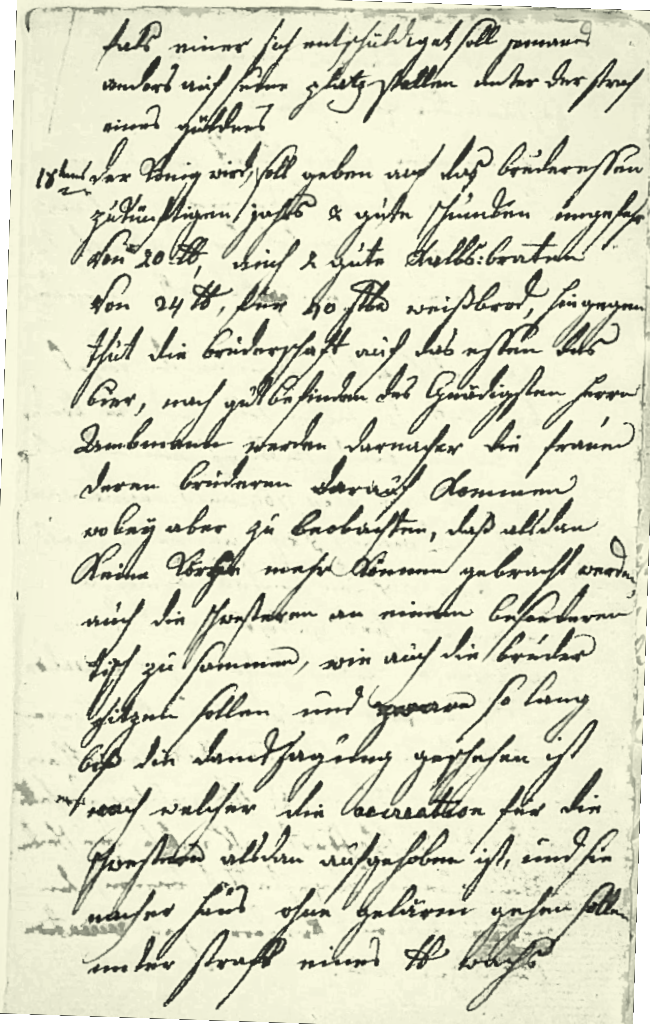 fals einer sich entschuldiget soll jemand
anders auf seine platz stellen unter der straf
eines guldens
18tens der König wird, soll geben auf das bruderessen
zukünftigen jahrs 2 gute schuncken ungefehr
von 20 ℔, auch 2 gute Kalbs:braten
von 24 ℔, für 40 stbr weißbrod, hingegen
thut die bruderschaft auf das essen das
bier, nach gutbefinden des Gnädigsten Herrn
Ambmann werden darnacher die frauen
deren bruderen darauf kommen
wobey aber zu beobachten, daß alsdan
keine mehr können gebracht werden,
auch die schwesteren an einem besonderen
tisch zu sammen, wie auch die brüder
sitzen sollen und zware so lang
biß die dancksagung geschehen ist
nach welcher die recreation für die
schwestern alsdan aufgehoben ist, und sie
nacher haus ohne gelärm gehen sollen
unter straf eines ℔ wachs